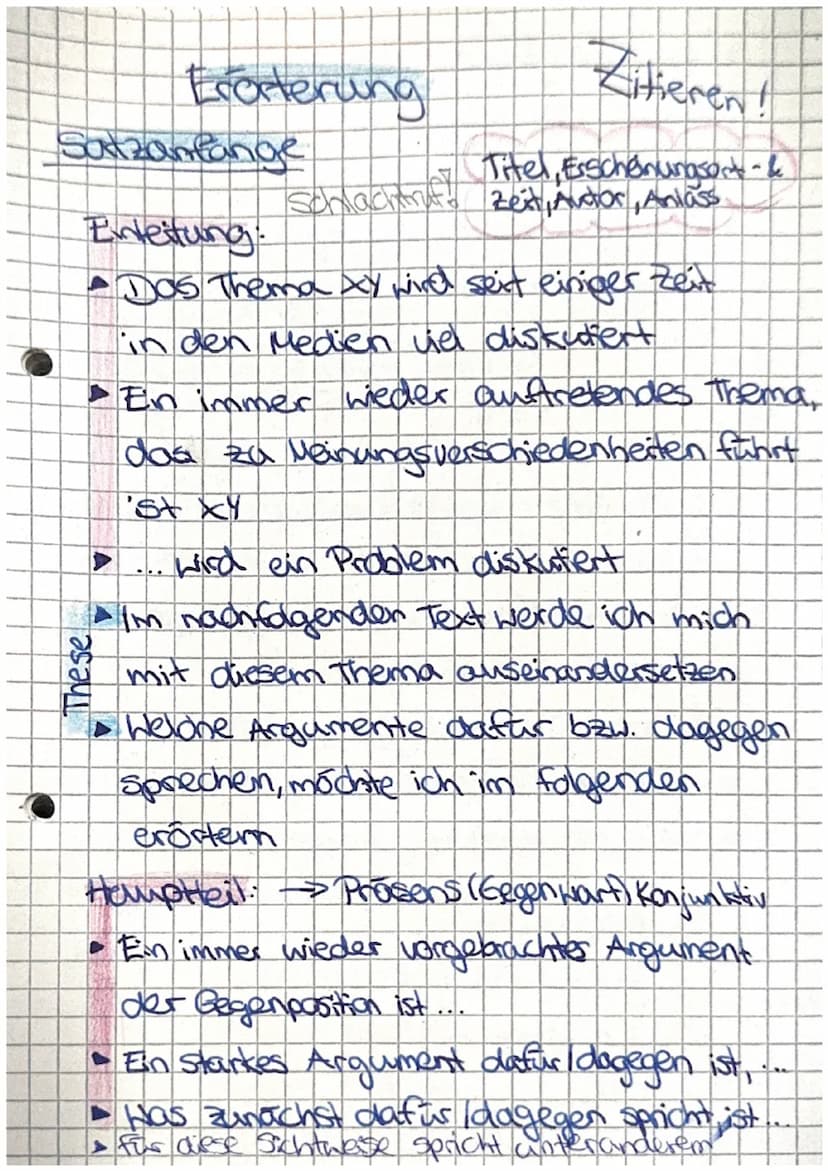 Erörterung
Zitieren!
Satzanfänge
Titel, Erscheinungsort - &
Schlachtruf! Zeit, Autor, Anlass
Einleitung:
Das Thema XY wird seit einiger Zeit
in den Medien viel diskutiert
Ein immer wieder auftretendes Thema,
das zu Meinungsverschiedenheiten führt
ist XY
... wird ein Problem diskutiert
These
Im nachfolgenden Text werde ich mich
mit diesem Thema auseinandersetzen
Welche Argumente dafür bzw. dagegen
sprechen, möchte ich im folgenden
erörtern
Hauptteil: → Präsens (Gegenwart) Konjunktiv
Ein immer wieder vorgebrachtes Argument
der Gegenposition ist ...
Ein starkes Argument dafür/dagegen ist, ...
Was zunächst dafür/dagegen spricht, ist ...
Für diese Sichtweise spricht unteranderem